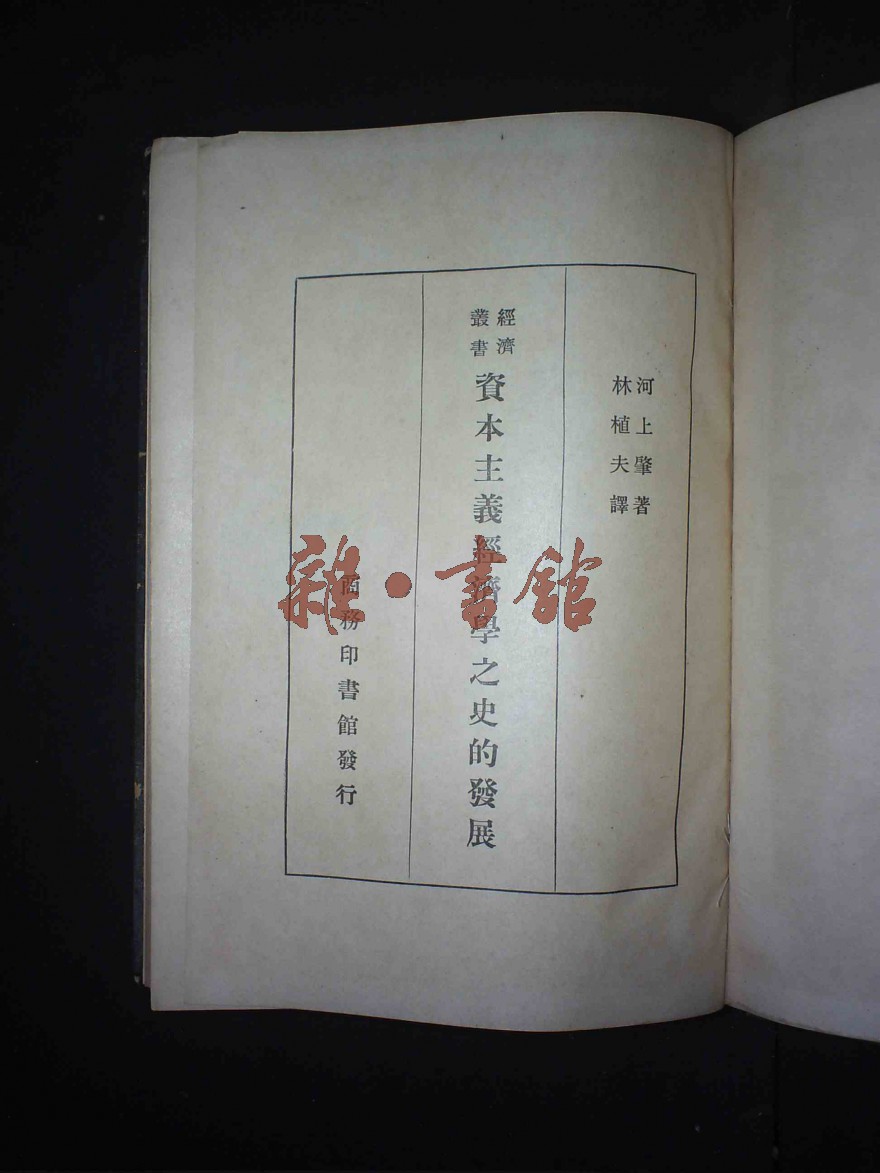 河上肇著
林植夫譯
經濟
叢書
資本主義經濟學之史的發展
商務印書館發行
雜·書館